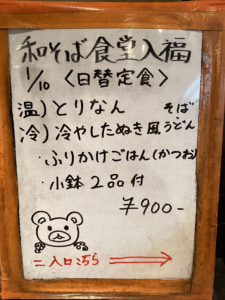 和そば食堂入福
1/10 〈日替定食〉
温）とりなん そば
冷）冷やしたぬき風うどん
・ふりかけごはん（かつお）
・小鉢2品付
¥900-
入口こちら →